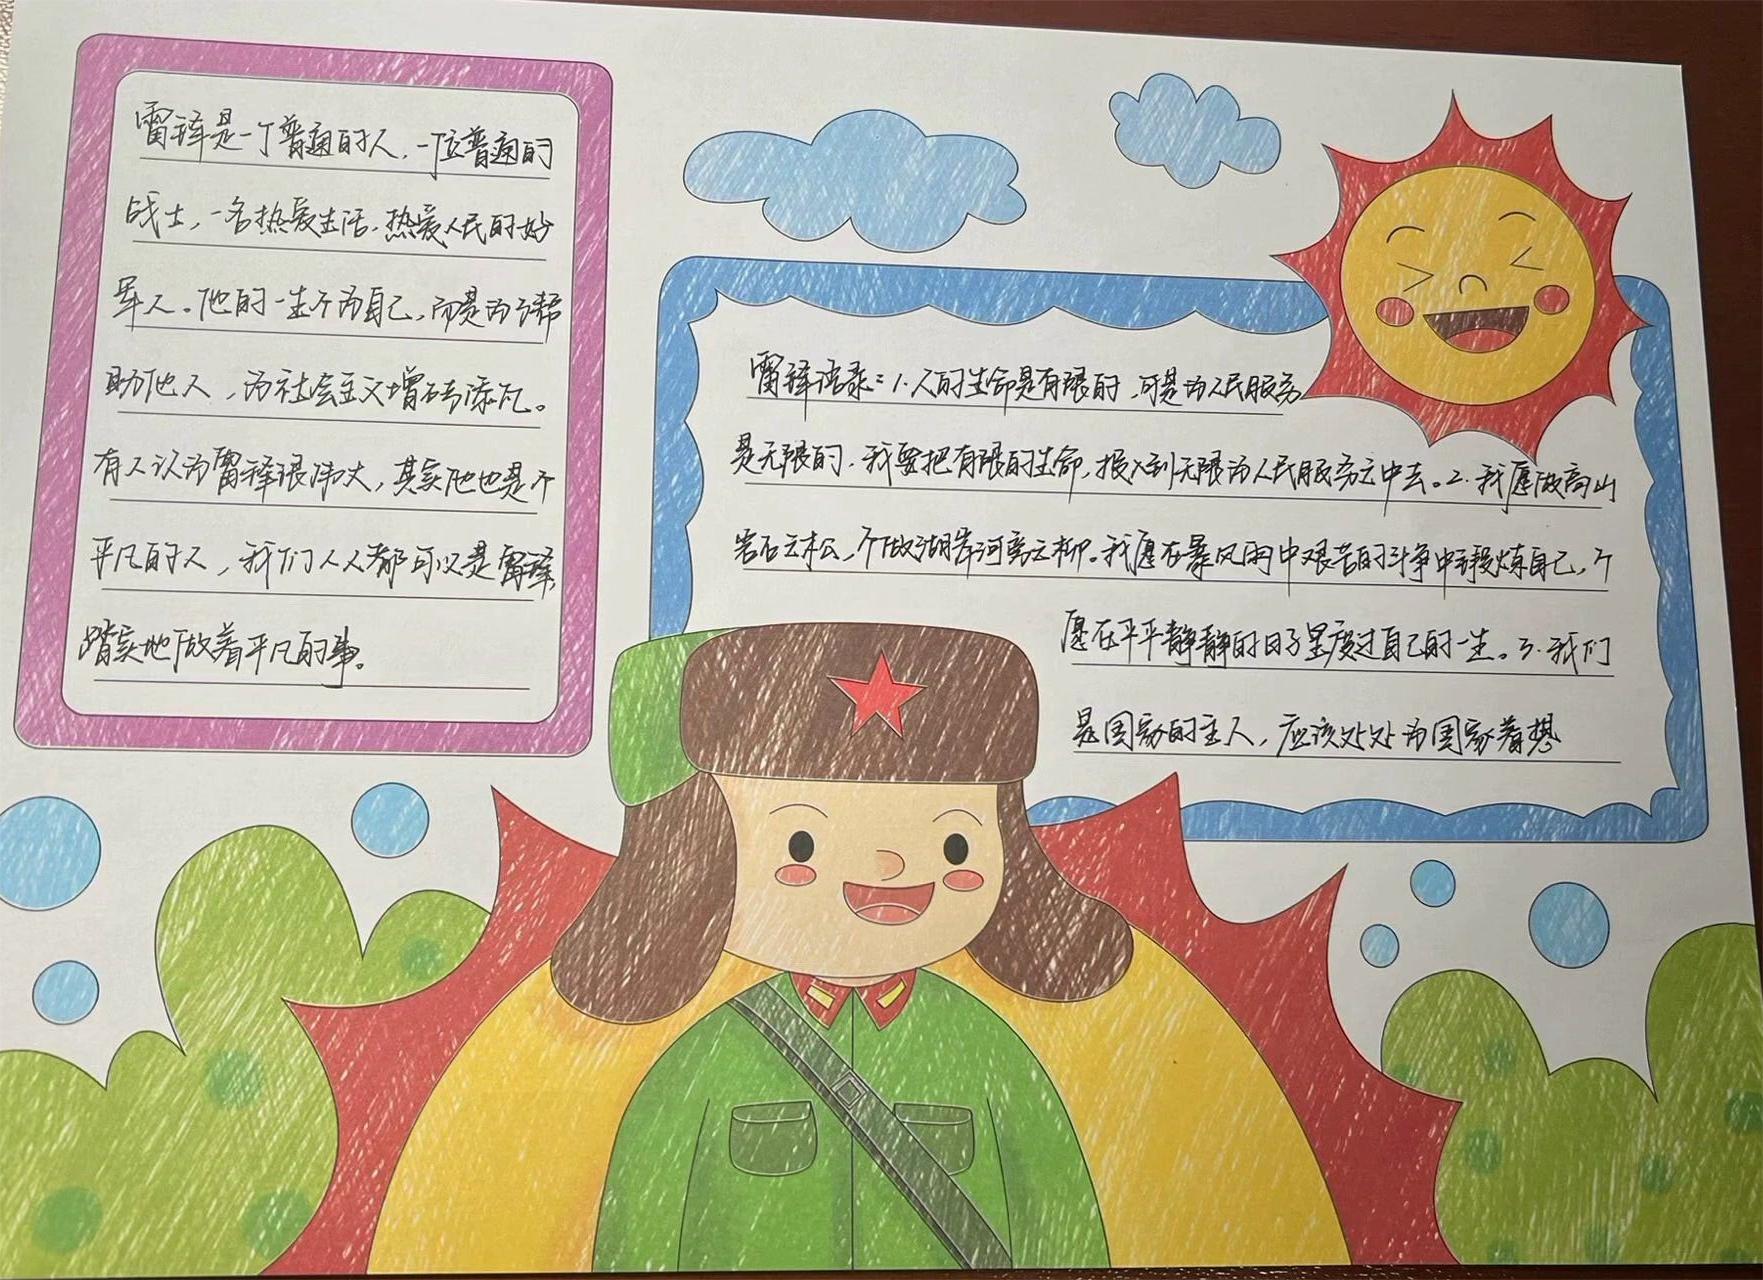 雷锋是一个普通的人，一位普通的
战士，一名热爱生活，热爱人民的好
军人。他的一生不为自己，而是为了帮
助他人，为社会主义增砖添瓦。
有人认为雷锋很伟大，其实他也是个
平凡的人，我们人人都可以是雷锋，
踏实地做着平凡的事。
雷锋语录：1.人的生命是有限的，可是为人民服务
是无限的，我要把有限的生命，投入到无限为人民服务之中去。2.我愿做高山
岩石之松，不做湖岸河旁之柳。我愿在暴风雨中艰苦的斗争中锻炼自己，不
愿在平平静静的日子里度过自己的一生。3.我们
是国家的主人，应该处处为国家着想